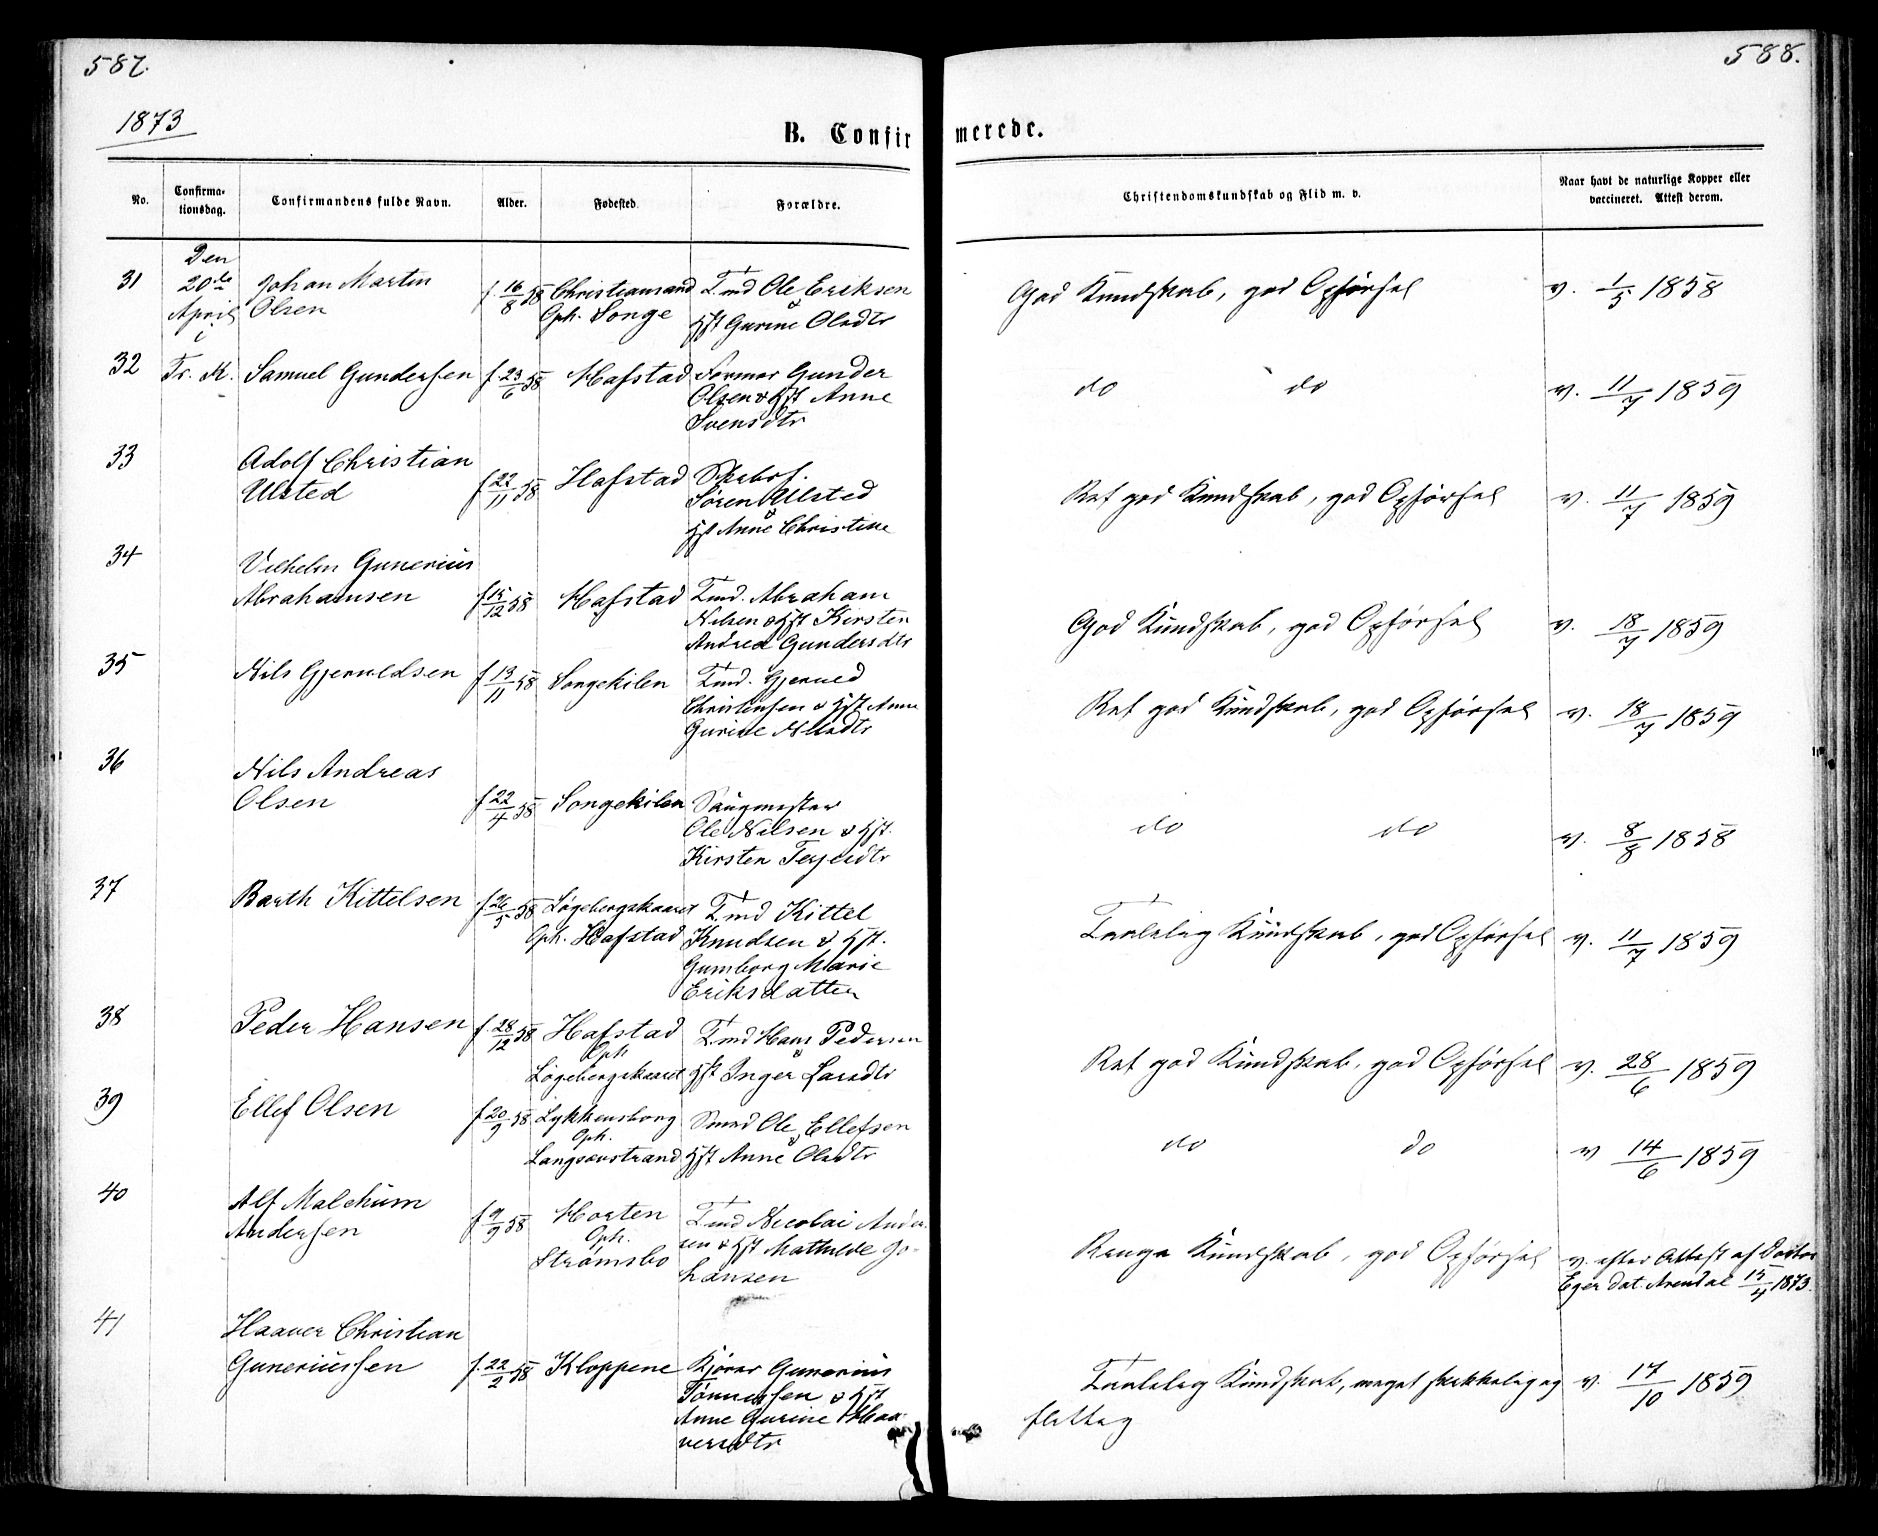 587.
588.
1873
B. Confirmerede.
No.
Confirma-
tionsdag.
Confirmandens fulde Navn.
Alder.
Fødested.
Forældre.
Christendomskundskab og Flid m. v.
Naar havt de naturlige Kopper eller
vaccineret. Attest derom.
Den
20de
April
i
Tr. K.
31 Johan Martin
Olsen
f. 16/8 58
Christiansand
Oph. Songe
Tmd Ole Eriksen
& Hst Gurine Olsdtr
God Kundskab, god Opførsel
v. 1/5 1858
32 Samuel Gundersen
f 23/6 58
Hafstad
Former Gunder
Olsen & Hst Anne
Svensdtr
do do
v. 11/7 1859
33 Adolf Christian
Ulsted
f 22/11 58
Hafstad
Søren Ulsted
& Hst Anne Christine
Ret god Kundskab, god Opførsel
v. 11/7 1859
34 Vilhelm Gunerius
Abrahamsen
f 15/12 58
Hafstad
Tmd. Abraham
Nilsen & Hst Kirsten
Andrea Gundersdtr
God Kundskab, god Opførsel
v. 18/7 1859
35 Nils Gjeruldsen
f 13/11 58
Songekilen
Tmd. Gjerued
Christensen & Hst Anne
Gurine Nilsdtr
Ret god Kundskab, god Opførsel
v. 18/7 1859
36 Nils Andreas
Olsen
f 22/4 58
Songekilen
Saugmester
Ole Nilsen & Hst.
Kirsten Terjesdtr
do do
v. 8/8 1858
37 Barth Kittelsen
f 26/5 58
Løgebergskaaret
Oph. Hafstad
Tmd Kittel
Knudsen & Hst.
Gumborg Marie
Eriksdatter
Taalelig Kundskab, god Opførsel
v. 11/7 1859
38 Peder Hansen
f. 28/12 58
Hafstad
Oph
Løgebergskaaret
Tmd Hans Pedersen
& Hst Inger Larsdtr
Ret god Kundskab, god Opførsel
v. 28/6 1859
39 Ellef Olsen
f 20/9 58
Lykkensborg
Oph.
Langsævstrand
Smed Ole Ellefsen
& Hst Anne Olsdtr
do do
v 14/6 1859
40 Alf Malchum
Andersen
f 9/9 58
Morten
Oph.
Strømsbo
Tmd Nicolai Ander-
sen & Hst Mathilde Jo-
hansen
Ringe Kundskab, god Opførsel
v. efter Attest af Doctor
Eger dat. Arendal 15/4 1873.
41 Haaver Christian
Guneriussen
f. 22/2 58
Kloppene
Kjører Gunerius
Tønnessen & Hst
Anne Gurine Haa-
versdtr
Taalelig Kundskab, meget skikkelig og
flittig
v. 17/10 1859